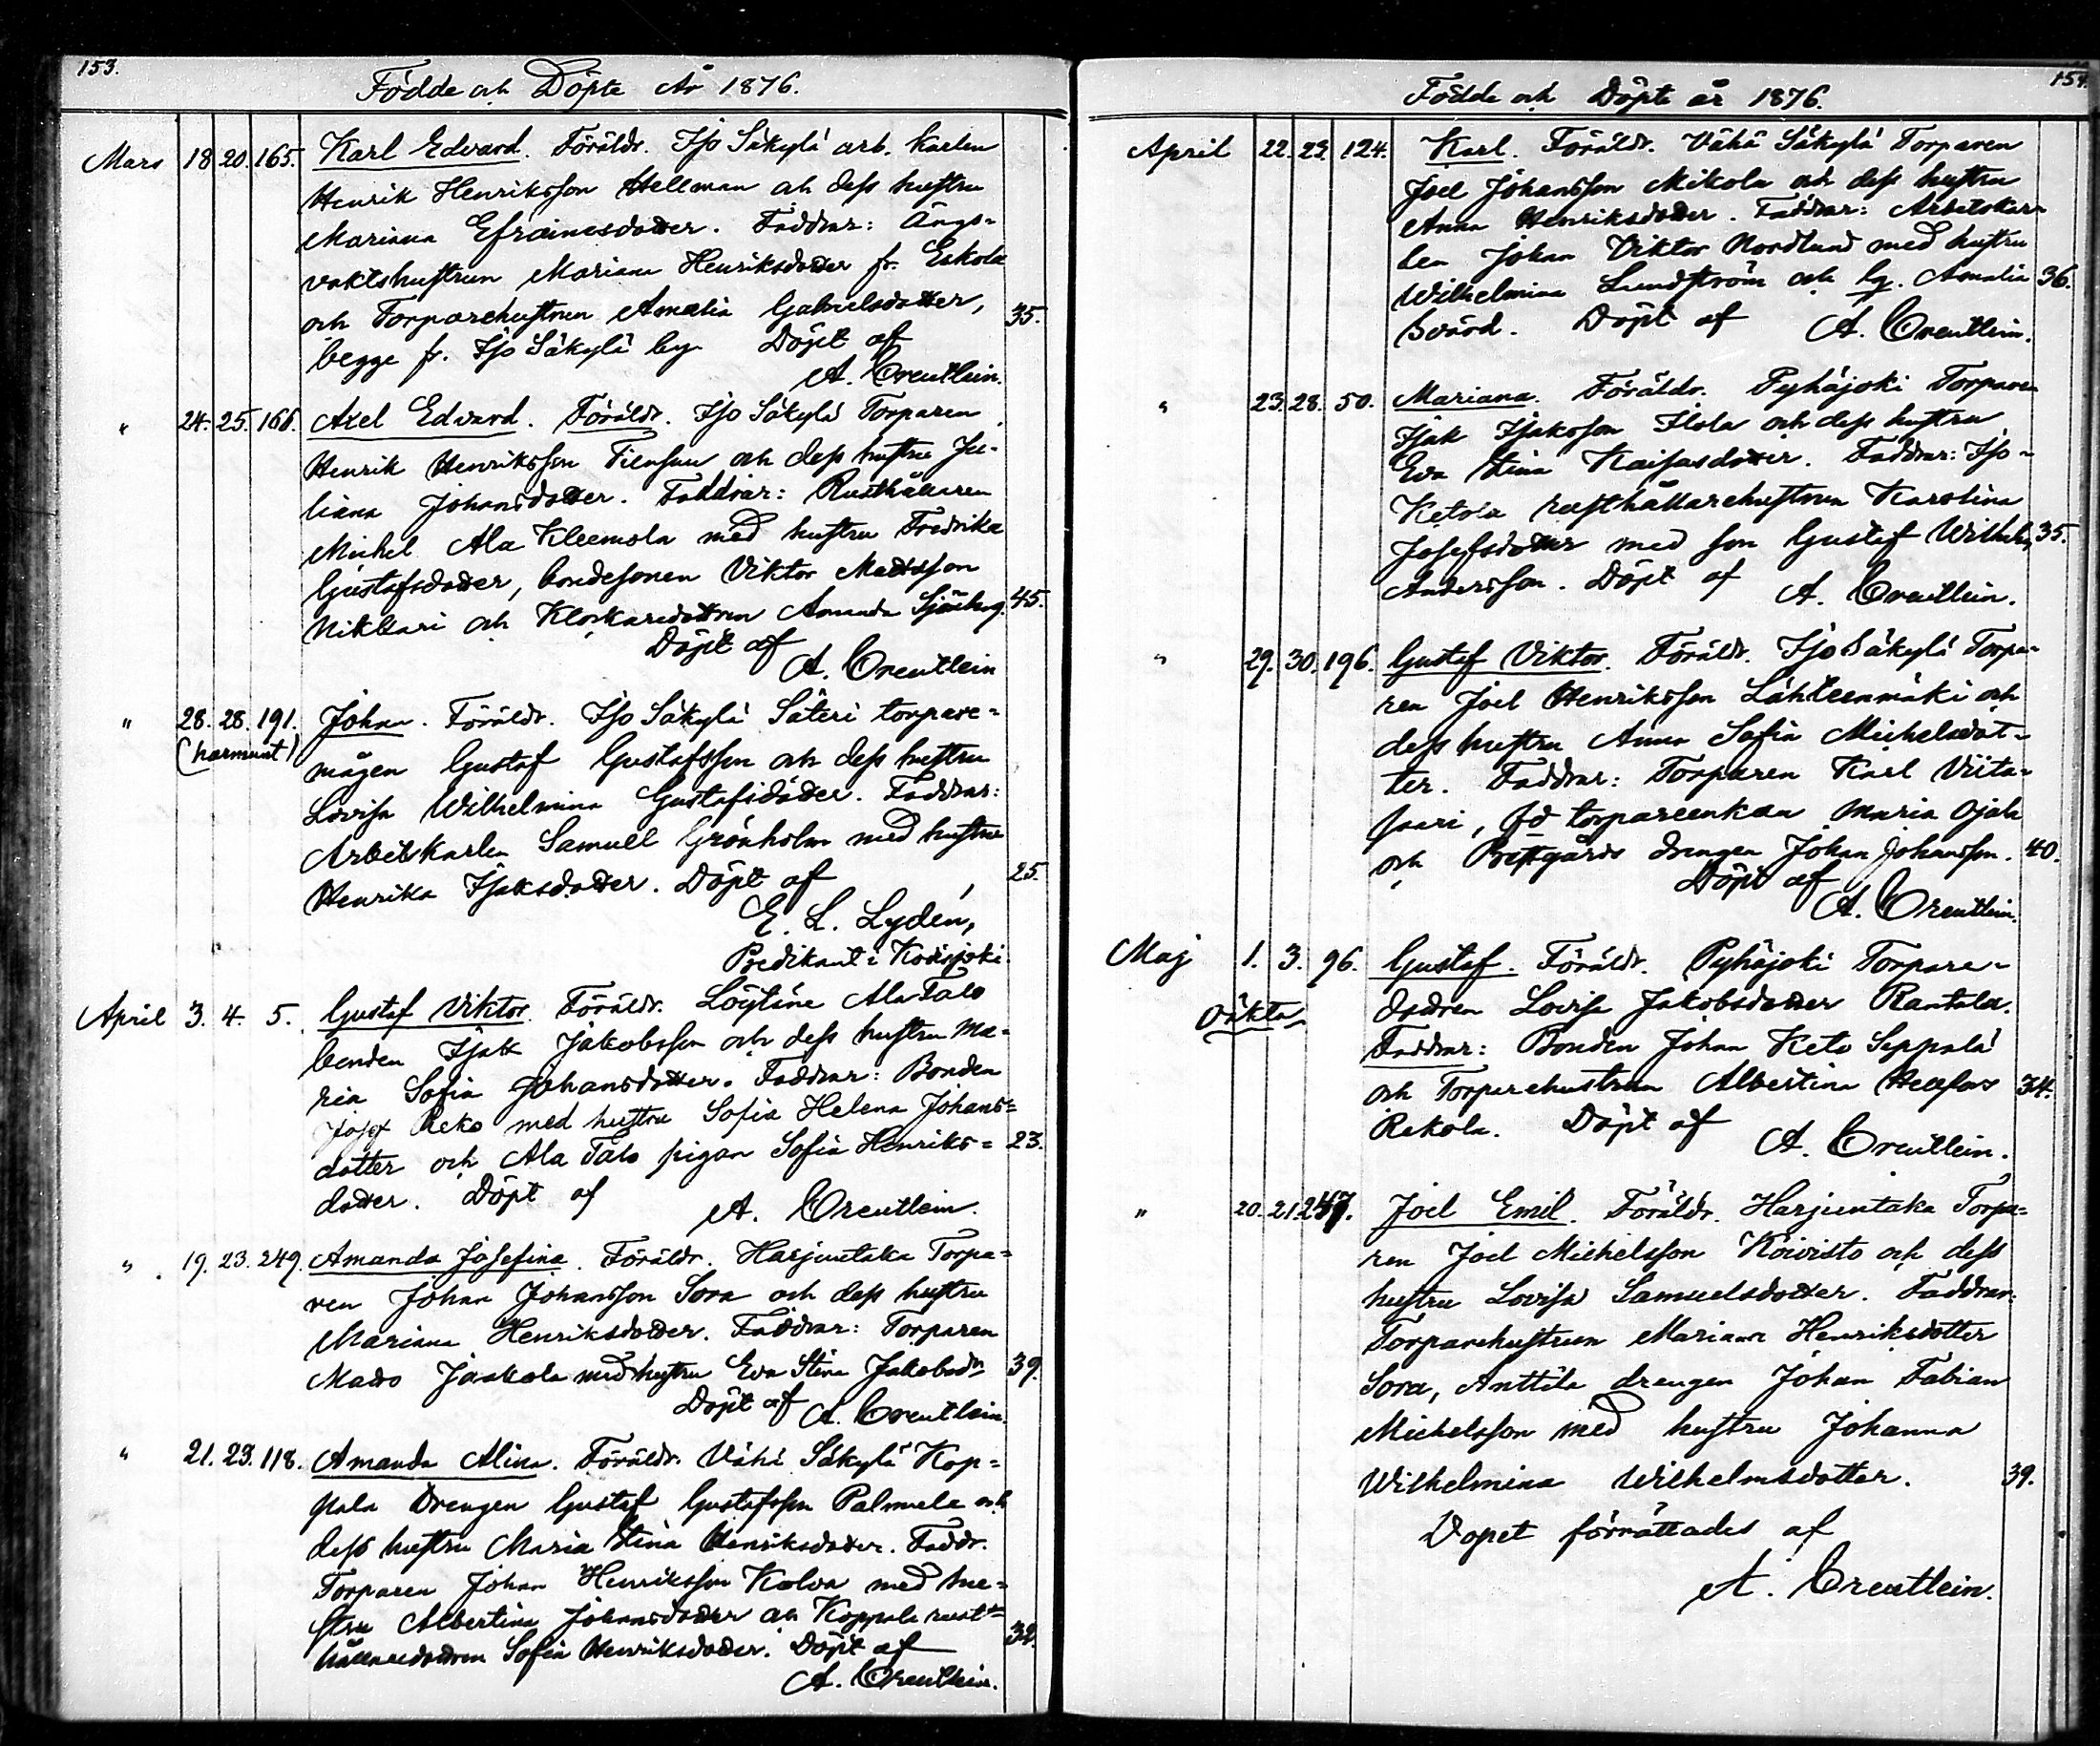 153.
Födde och Döpte År 1876.
Mars 18. 20. 165. Karl Edvard. Föräldr. Iso Säkylä arb. karlen
Henrik Henriksson Hellman och dess hustru
Mariana Efraimsdotter. Faddrar: Ängs-
vaktshustrun Mariana Henriksdotter fr. Eskola
och Torparehustrun Amalia Gabrielsdotter, 35.
begge fr. Iso Säkylä by. Döpt af
A. Creutlein.
" 24. 25. 166. Axel Edvard. Föräldr. Iso Säkylä Torparen
Henrik Henriksson och dess hustru Ju-
liana Johansdotter. Faddrar: Rusthållaren
Michel Ala Kleemola med hustru Fredrika
Gustafsdotter, bondesonen Viktor Mattsson
Nikkari och Klockaredottren Amanda Sjöberg. 45.
Döpt af
A. Creutlein
" 28. 28. 191. Johan. Föräldr. Iso Säkylä Säteri torpare-
(harmunt) mågen Gustaf Gustafsson och dess hustru
Lovisa Wilhelmina Gustafsdotter. Faddrar:
Arbetskarlen Samuel Grönholm med hustru
Henrika Isaksdotter. Döpt af 25.
E. L. Lydén,
Predikant i Kodisjoki.
April 3. 4. 5. Gustaf Viktor. Föräldr. Löytäne Ala Talo
bonden Isak Jakobsson och dess hustru Ma-
ria Sofia Johansdotter. Faddrar: Bonden
Josef Reko med hustru Sofia Helena Johans-
dotter och Ala Talo pigan Sofia Henriks- 23.
dotter. Döpt af
A. Creutlein.
" 19. 23. 249. Amanda Josefina. Föräldr. Harjuntaka Torpa-
ren Johan Johansson Sora och dess hustru
Mariana Henriksdotter. Faddrar: Torparen
Matts Jaakola med hustru Eva Stina Jakobsdr 39.
Döpt af A. Creutlein.
" 21. 23. 118. Amanda Alina. Föräldr. Vähä Säkylä Kop-
pala Drengen Gustaf Gustafsson Palmula och
dess hustru Maria Stina Henriksdotter. Faddr.
Torparen Johan Henriksson Kalva med hu-
stru Albertina Johansdotter och Koppala rust-
hållaredottren Sofia Henriksdotter. Döpt af 32.
A. Creutlein.
154.
Födde och Döpte år 1876.
April 22. 23. 124. Karl. Föräldr. Vähä Säkylä Torparen
Joel Johansson Mikola och dess hustru
Anna Henriksdotter. Faddrar: Arbetskar-
len Johan Viktor Nordlund med hustru
Wilhelmina Lundström och Amalia 36.
Svärd. Döpt af A. Creutlein.
" 23. 28. 50. Mariana. Föräldr. Pyhäjoki Torparen
Isak Isaksson Ilola och dess hustru
Eva Stina Kaisasdotter. Faddrar: Iso-
Ketola rusthållarehustrun Karolina
Josefsdotter med son Gustaf Wilhelm 35.
Andersson. Döpt af A. Creutlein.
" 29. 30. 196. Gustaf Viktor. Föräldr. Iso Säkylä Torpa-
ren Joel Henriksson Lähteenmäki och
dess hustru Anna Sofia Michelsdot-
ter. Faddrar: Torparen Karl Viita-
saari, fd torpareenkan Maria Ojala
och Prestgårds drengen Johan Johansson. 40.
Döpt af
A. Creutlein.
Maj 1. 3. 96. Gustaf. Föräldr. Pyhäjoki Torpare-
Oäkta dottren Lovisa Jakobsdotter Rantala.
Faddrar: Bonden Johan Keto Seppälä
och Torparehustrun Albertina 34.
Rekola. Döpt af A. Creutlein.
" 20. 21. 247. Joel Emil. Föräldr. Harjuntaka Torpa-
ren Joel Michelsson Koivisto och dess
hustru Lovisa Samuelsdotter. Faddrar:
Torparehustrun Mariana Henriksdotter
Sora, Anttila drengen Johan Fabian
Michelsson med hustru Johanna
Wilhelmina Wilhelmsdotter. 39.
Dopet förrättades af
A. Creutlein.